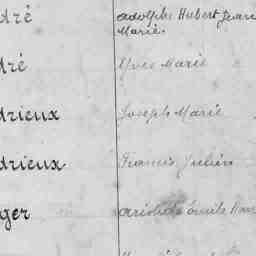 dré adolphe Hubert Jean
Marie.
dré Yves Marie
drieux Joseph Marie
drieux Francis Julien
ger aristide Emile